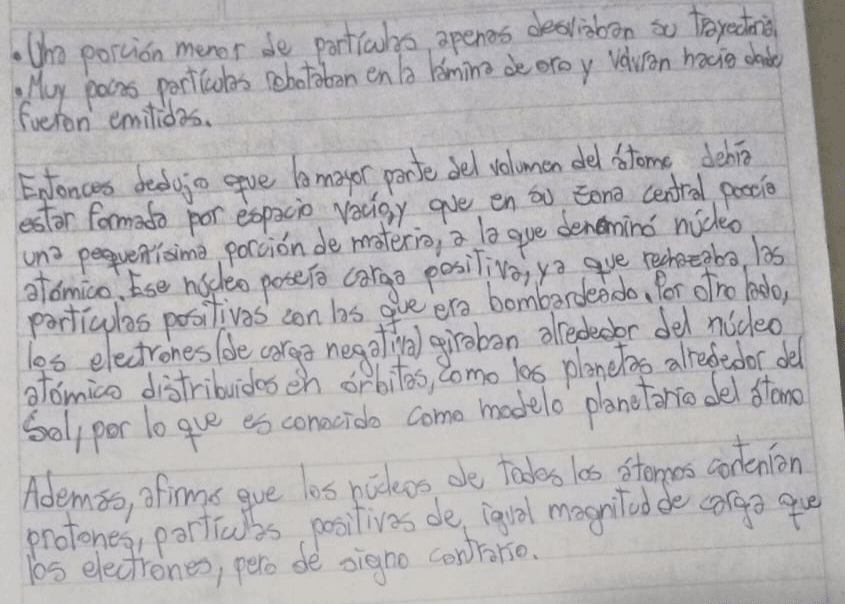 • Una porción menor de partículas apenas desviaban su trayectoria.
• Muy pocas partículas rebotaban en la lámina de oro y volvían hacia donde
fueron emitidas.
Entonces dedujo que la mayor parte del volumen del átomo debía
estar formada por espacio vacío, y que en su zona central poseía
una pequeñísima porción de materia, a la que denominó núcleo
atómico. Ese núcleo poseía carga positiva, ya que rechazaba las
partículas positivas con las que era bombardeado. Por otro lado,
los electrones (de carga negativa) giraban alrededor del núcleo
atómico distribuidos en órbitas, como los planetas alrededor del
Sol, por lo que es conocido como modelo planetario del átomo
Además, afirmó que los núcleos de todos los átomos contenían
protones, partículas positivas de igual magnitud de carga que
los electrones, pero de signo contrario.